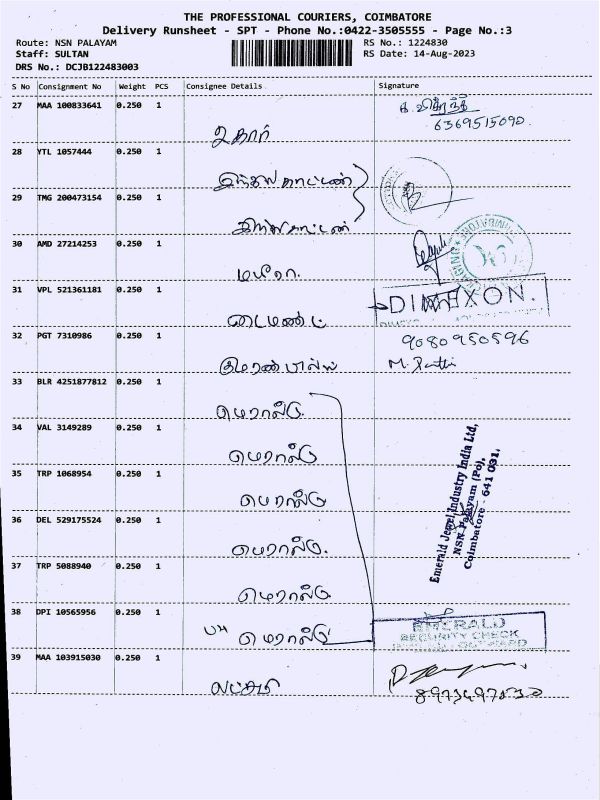 THE PROFESSIONAL COURIERS, COIMBATORE
Delivery Runsheet - SPT - Phone No.:0422-3505555 - Page No.:3
Route: NSN PALAYAM RS No.: 1224830
Staff: SULTAN RS Date: 14-Aug-2023
DRS No.: DCJB122483003
S No Consignment No Weight PCS Consignee Details Signature
27 MAA 100833641 0.250 1
6369515090
28 YTL 1057444 0.250 1
29 TMG 200473154 0.250 1
30 AMD 27214253 0.250 1
31 VPL 521361181 0.250 1 DIMEXON.
டைமண்ட்
32 PGT 7310986 0.250 1 9080950596
33 BLR 4251877812 0.250 1
எமரால்டு
34 VAL 3149289 0.250 1
எமரால்டு
35 TRP 1068954 0.250 1
எமரால்டு
36 DEL 529175524 0.250 1
எமரால்டு
37 TRP 5088940 0.250 1
எமரால்டு
Emerald Jewel Industry India Ltd,
NSN Palayam (Po),
Coimbatore - 641 031.
38 DPI 10565956 0.250 1 EMERALD
எமரால்டு SECURITY CHECK
39 MAA 103915030 0.250 1
லட்சுமி